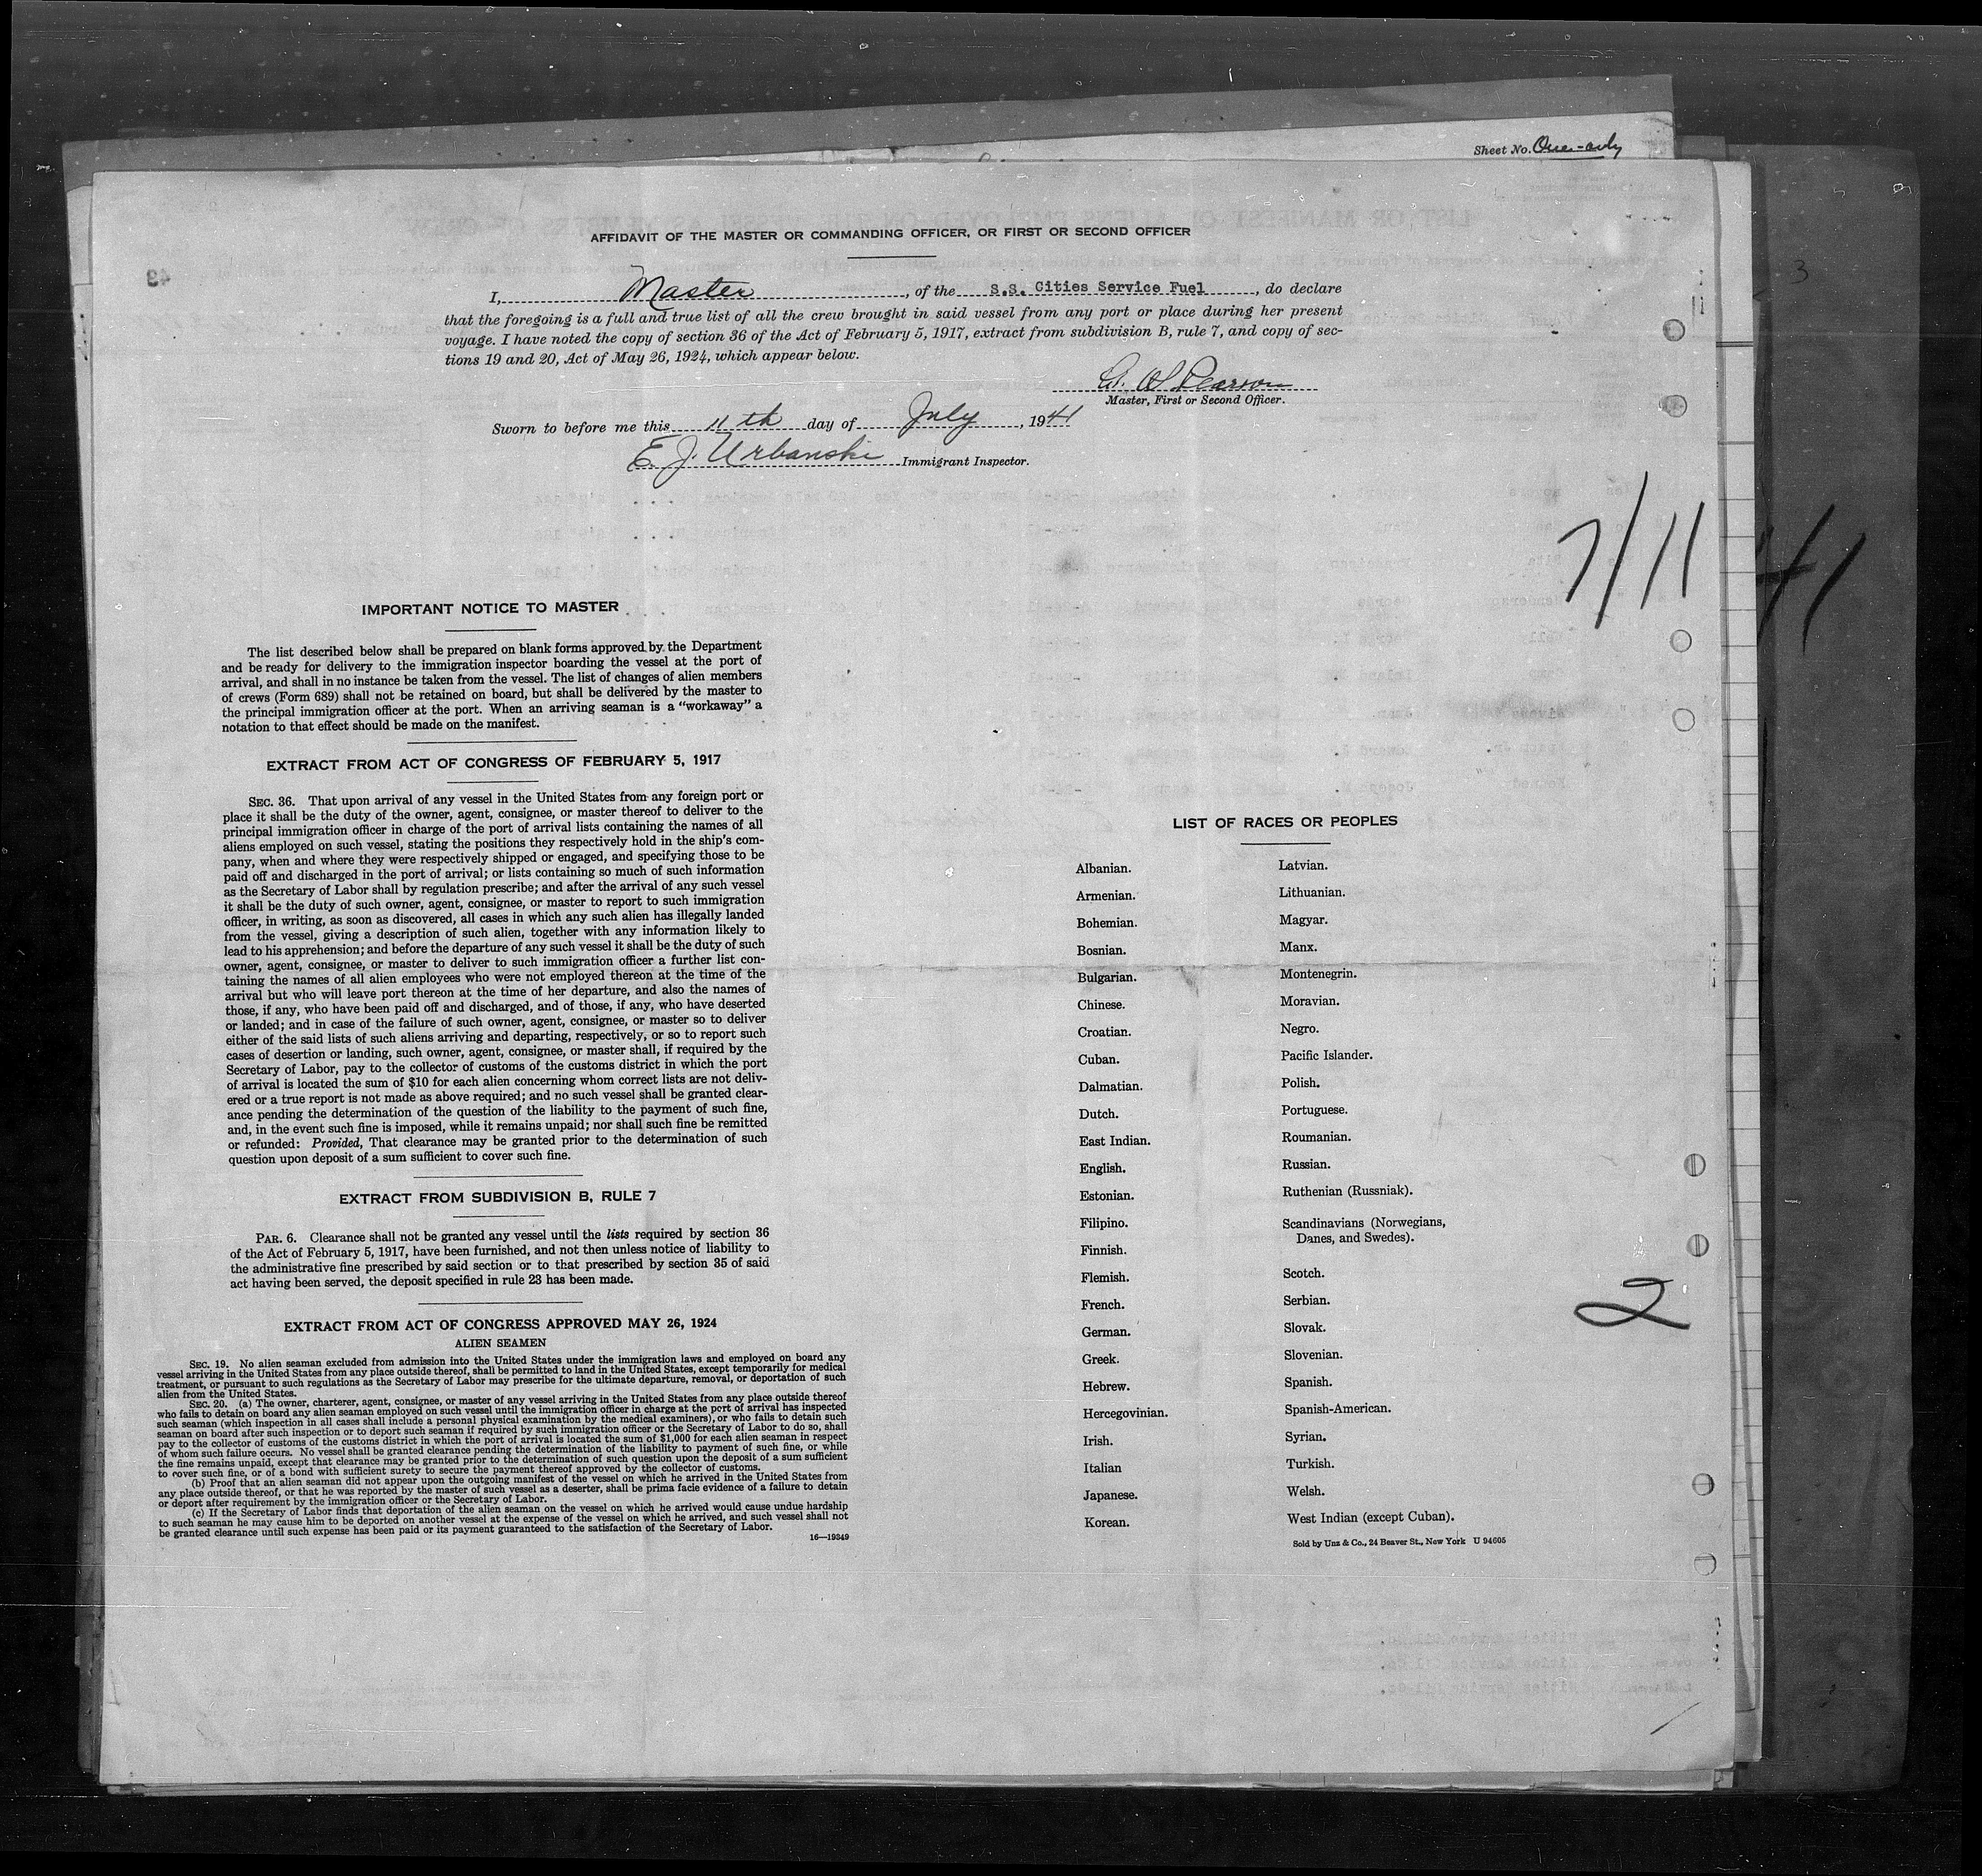 Sheet No. One-only
AFFIDAVIT OF THE MASTER OR COMMANDING OFFICER, OR FIRST OR SECOND OFFICER
I, Master, of the S.S. Cities Service Fuel, do declare
that the foregoing is a full and true list of all the crew brought in said vessel from any port or place during her present
voyage. I have noted the copy of section 36 of the Act of February 5, 1917, extract from subdivision B, rule 7, and copy of sec-
tions 19 and 20, Act of May 26, 1924, which appear below.
Pearson
Master, First or Second Officer.
Sworn to before me this 11th day of July, 1941
E. J. Urbanski Immigrant Inspector.
7/11
41
3
IMPORTANT NOTICE TO MASTER
The list described below shall be prepared on blank forms approved by the Department
and be ready for delivery to the immigration inspector boarding the vessel at the port of
arrival, and shall in no instance be taken from the vessel. The list of changes of alien members
of crews (Form 689) shall not be retained on board, but shall be delivered by the master to
the principal immigration officer at the port. When an arriving seaman is a "workaway" a
notation to that effect should be made on the manifest.
EXTRACT FROM ACT OF CONGRESS OF FEBRUARY 5, 1917
SEC. 36. That upon arrival of any vessel in the United States from any foreign port or
place it shall be the duty of the owner, agent, consignee, or master thereof to deliver to the
principal immigration officer in charge of the port of arrival lists containing the names of all
aliens employed on such vessel, stating the positions they respectively hold in the ship's com-
pany, when and where they were respectively shipped or engaged, and specifying those to be
paid off and discharged in the port of arrival; or lists containing so much of such information
as the Secretary of Labor shall by regulation prescribe; and after the arrival of any such vessel
it shall be the duty of such owner, agent, consignee, or master to report to such immigration
officer, in writing, as soon as discovered, all cases in which any such alien has illegally landed
from the vessel, giving a description of such alien, together with any information likely to
lead to his apprehension; and before the departure of any such vessel it shall be the duty of such
owner, agent, consignee, or master to deliver to such immigration officer a further list con-
taining the names of all alien employees who were not employed thereon at the time of the
arrival but who will leave port thereon at the time of her departure, and also the names of
those, if any, who have been paid off and discharged, and of those, if any, who have deserted
or landed; and in case of the failure of such owner, agent, consignee, or master so to deliver
either of the said lists of such aliens arriving and departing, respectively, or so to report such
cases of desertion or landing, such owner, agent, consignee, or master shall, if required by the
Secretary of Labor, pay to the collector of customs of the customs district in which the port
of arrival is located the sum of $10 for each alien concerning whom correct lists are not deliv-
ered or a true report is not made as above required; and no such vessel shall be granted clear-
ance pending the determination of the question of the liability to the payment of such fine,
and, in the event such fine is imposed, while it remains unpaid; nor shall such fine be remitted
or refunded: Provided, That clearance may be granted prior to the determination of such
question upon deposit of a sum sufficient to cover such fine.
EXTRACT FROM SUBDIVISION B, RULE 7
PAR. 6. Clearance shall not be granted any vessel until the lists required by section 36
of the Act of February 5, 1917, have been furnished, and not then unless notice of liability to
the administrative fine prescribed by said section or to that prescribed by section 35 of said
act having been served, the deposit specified in rule 23 has been made.
EXTRACT FROM ACT OF CONGRESS APPROVED MAY 26, 1924
ALIEN SEAMEN
SEC. 19. No alien seaman excluded from admission into the United States under the immigration laws and employed on board any
vessel arriving in the United States from any place outside thereof, shall be permitted to land in the United States, except temporarily for medical
treatment, or pursuant to such regulations as the Secretary of Labor may prescribe for the ultimate departure, removal, or deportation of such
alien from the United States.
SEC. 20. (a) The owner, charterer, agent, consignee, or master of any vessel arriving in the United States from any place outside thereof
who fails to detain on board any alien seaman employed on such vessel until the immigration officer in charge at the port of arrival has inspected
such seaman (which inspection in all cases shall include a personal physical examination by the medical examiners), or who fails to detain such
seaman on board after such inspection or to deport such seaman if required by such immigration officer or the Secretary of Labor to do so, shall
pay to the collector of customs of the customs district in which the port of arrival is located the sum of $1,000 for each alien seaman in respect
of whom such failure occurs. No vessel shall be granted clearance pending the determination of the liability to payment of such fine, or while
the fine remains unpaid, except that clearance may be granted prior to the determination of such question upon the deposit of a sum sufficient
to cover such fine, or of a bond with sufficient surety to secure the payment thereof approved by the collector of customs.
(b) Proof that an alien seaman did not appear upon the outgoing manifest of the vessel on which he arrived in the United States from
any place outside thereof, or that he was reported by the master of such vessel as a deserter, shall be prima facie evidence of a failure to detain
or deport after requirement by the immigration officer or the Secretary of Labor.
(c) If the Secretary of Labor finds that deportation of the alien seaman on the vessel on which he arrived would cause undue hardship
to such seaman he may cause him to be deported on another vessel at the expense of the vessel on which he arrived, and such vessel shall not
be granted clearance until such expense has been paid or its payment guaranteed to the satisfaction of the Secretary of Labor.
16—19349
LIST OF RACES OR PEOPLES
Albanian.
Armenian.
Bohemian.
Bosnian.
Bulgarian.
Chinese.
Croatian.
Cuban.
Dalmatian.
Dutch.
East Indian.
English.
Estonian.
Filipino.
Finnish.
Flemish.
French.
German.
Greek.
Hebrew.
Hercegovinian.
Irish.
Italian
Japanese.
Korean.
Latvian.
Lithuanian.
Magyar.
Manx.
Montenegrin.
Moravian.
Negro.
Pacific Islander.
Polish.
Portuguese.
Roumanian.
Russian.
Ruthenian (Russniak).
Scandinavians (Norwegians,
Danes, and Swedes).
Scotch.
Serbian.
Slovak.
Slovenian.
Spanish.
Spanish-American.
Syrian.
Turkish.
Welsh.
West Indian (except Cuban).
Sold by Unz & Co., 24 Beaver St., New York U 94605
2